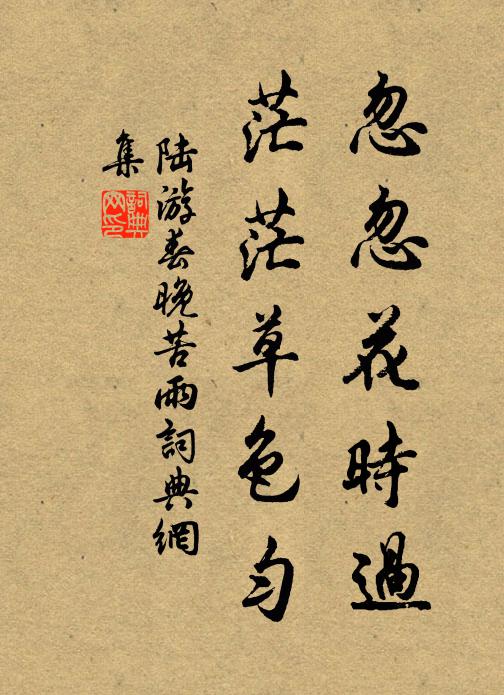 忽忽花時過
茫茫草色匀
陸游春晚苦雨詞典網
集
詞典
网印